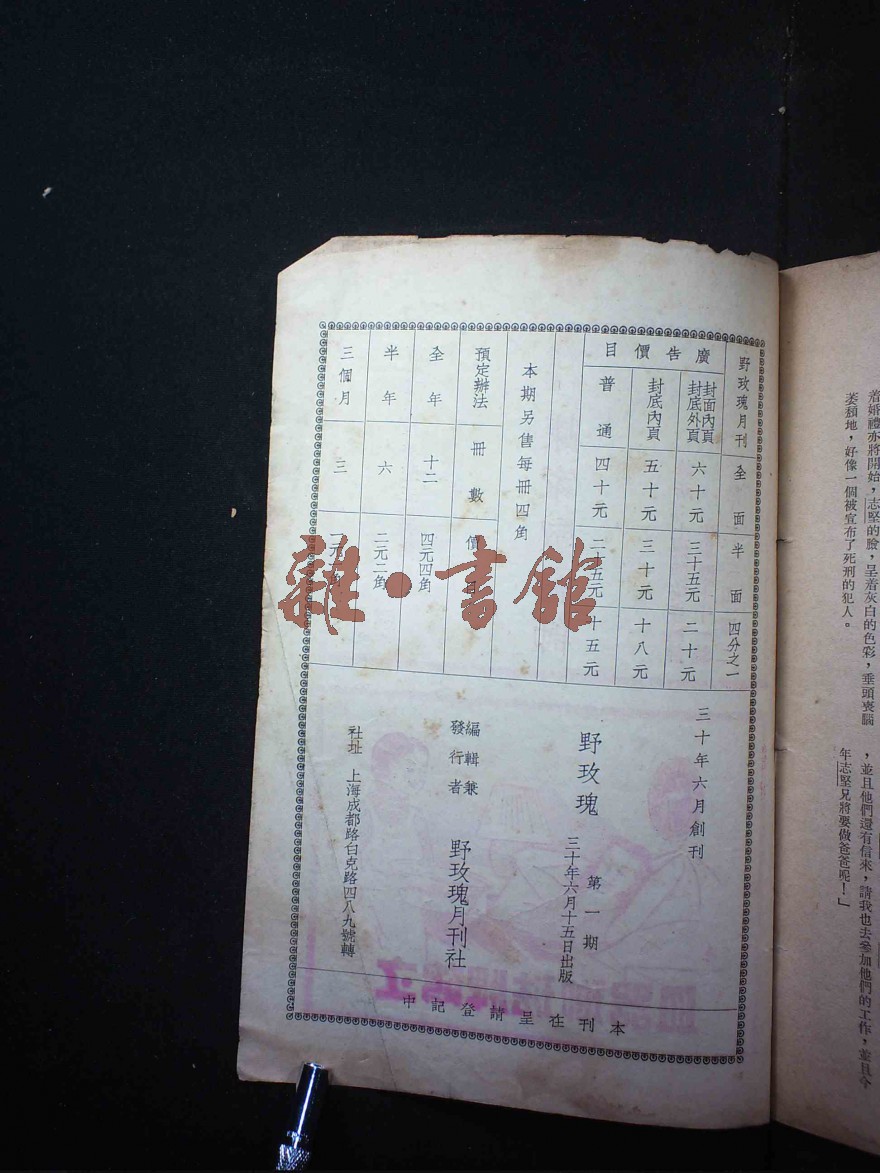 着婚禮亦將開始，志堅的臉，呈着灰白的色彩，垂頭喪腦
萎頹地，好像一個被宣布了死刑的犯人。
，並且他們還有信來，請我也去參加他們的工作，並且今
年志堅兄將要做爸爸呢！」
野玫瑰月刊 全面 半面 四分之一
廣告價目
封面內頁 封底外頁 六十元 三十五元 二十元
封底內頁 五十元 三十元 十八元
普通 四十元 二十五元 十五元
本期另售每冊四角
預定辦法 冊數 價
全年 十二 四元四角
半年 六 二元二角
三個月 三
三十年六月創刊
野玫瑰 第一期
三十年六月十五日出版
編輯兼
發行者 野玫瑰月刊社
社址 上海成都路白克路四八九號轉
本刊在呈請登記中
雜·書館